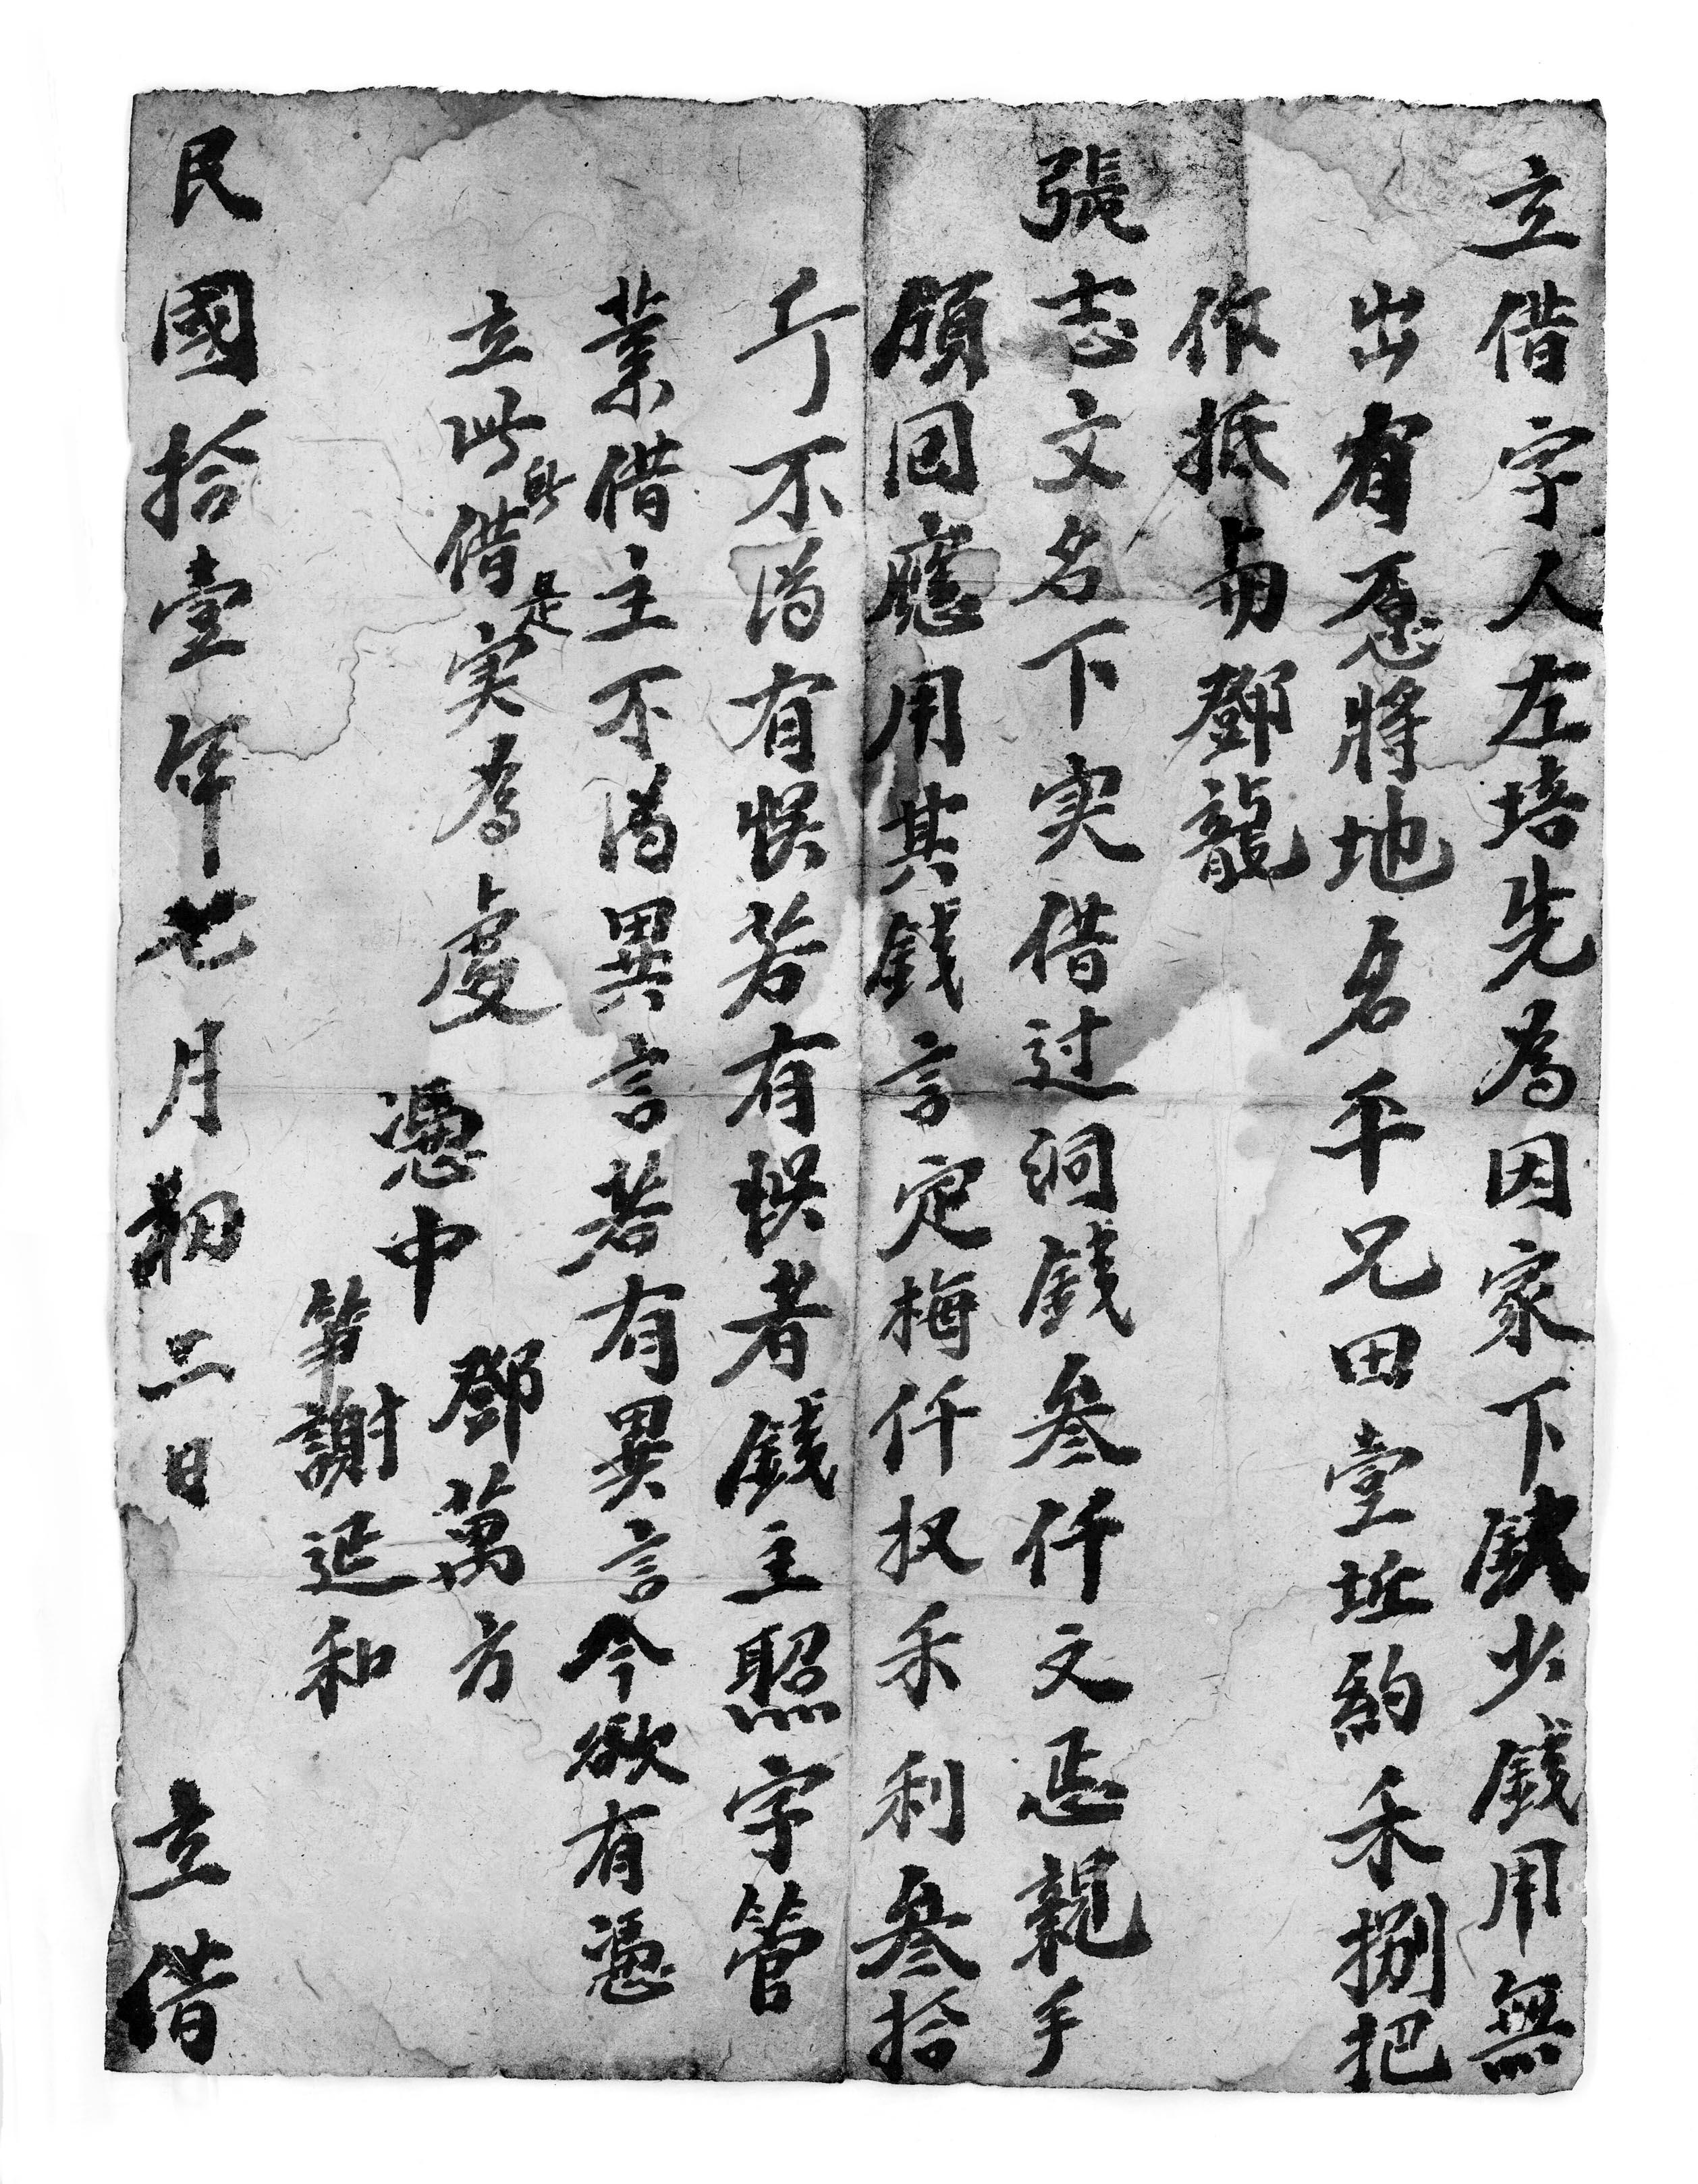 立借字人左培先為因家下缺少錢用無
出有愿將地名平兄田壹坵約禾捌把
作抵與鄧龍
張志文名下实借过銅錢叁仟文正親手
領回應用其錢言定每仟收禾利叁拾
斤不得有悮若有悮者錢主照字管
業借主不得異言若有異言今欲有憑
立此借是実為處
憑中 鄧萬方
筆謝延和
民國拾壹年七月初二日 立借